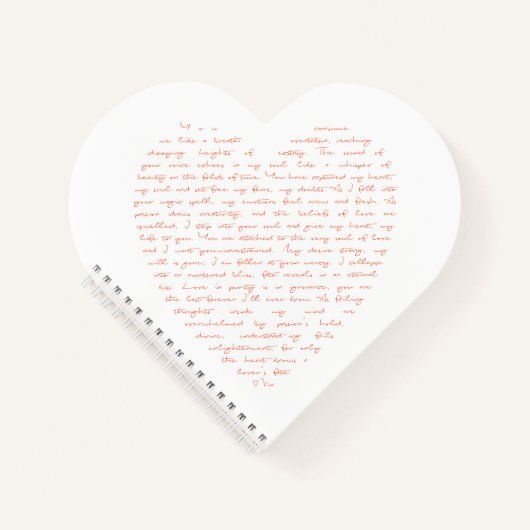 You consume
me like a breath overtaken, reaching
dizzying heights of ecstasy. The sound of
your voice echoes in my soul like a whisper of
beauty on the folds of time. You have captured my heart,
my soul and set free my fears, my doubts. As I fall into
your magic spell, my emotions feel anew and fresh. As
passion draws creativity, and the beliefs of love are
quelled, I step into your soul and give my heart, my
life to you. You are attached to the very soul of love
and I want you-unrestrained. My desire strong, my
will is gone; I am fallen at your mercy. I collapse
into an awakened bliss, fate reveals in an eternal
kiss. Love in purity is in ignorance, you are
the last forever I'll ever know. As failing
thoughts inside my mind are
overwhelmed by passion's hold,
divine, understand-ing fails
enlightenment, for only
the heart knows a
lover's fate.